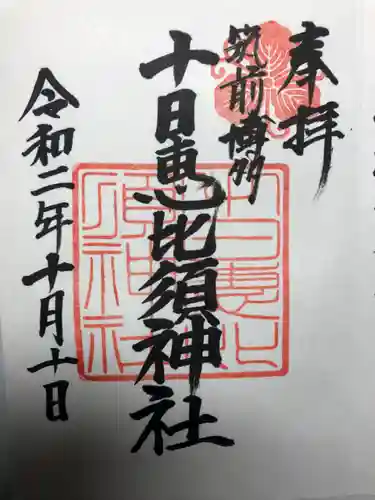 奉拝
筑前博多
十日恵比須神社
令和二年十月十日
十日恵比
須神社